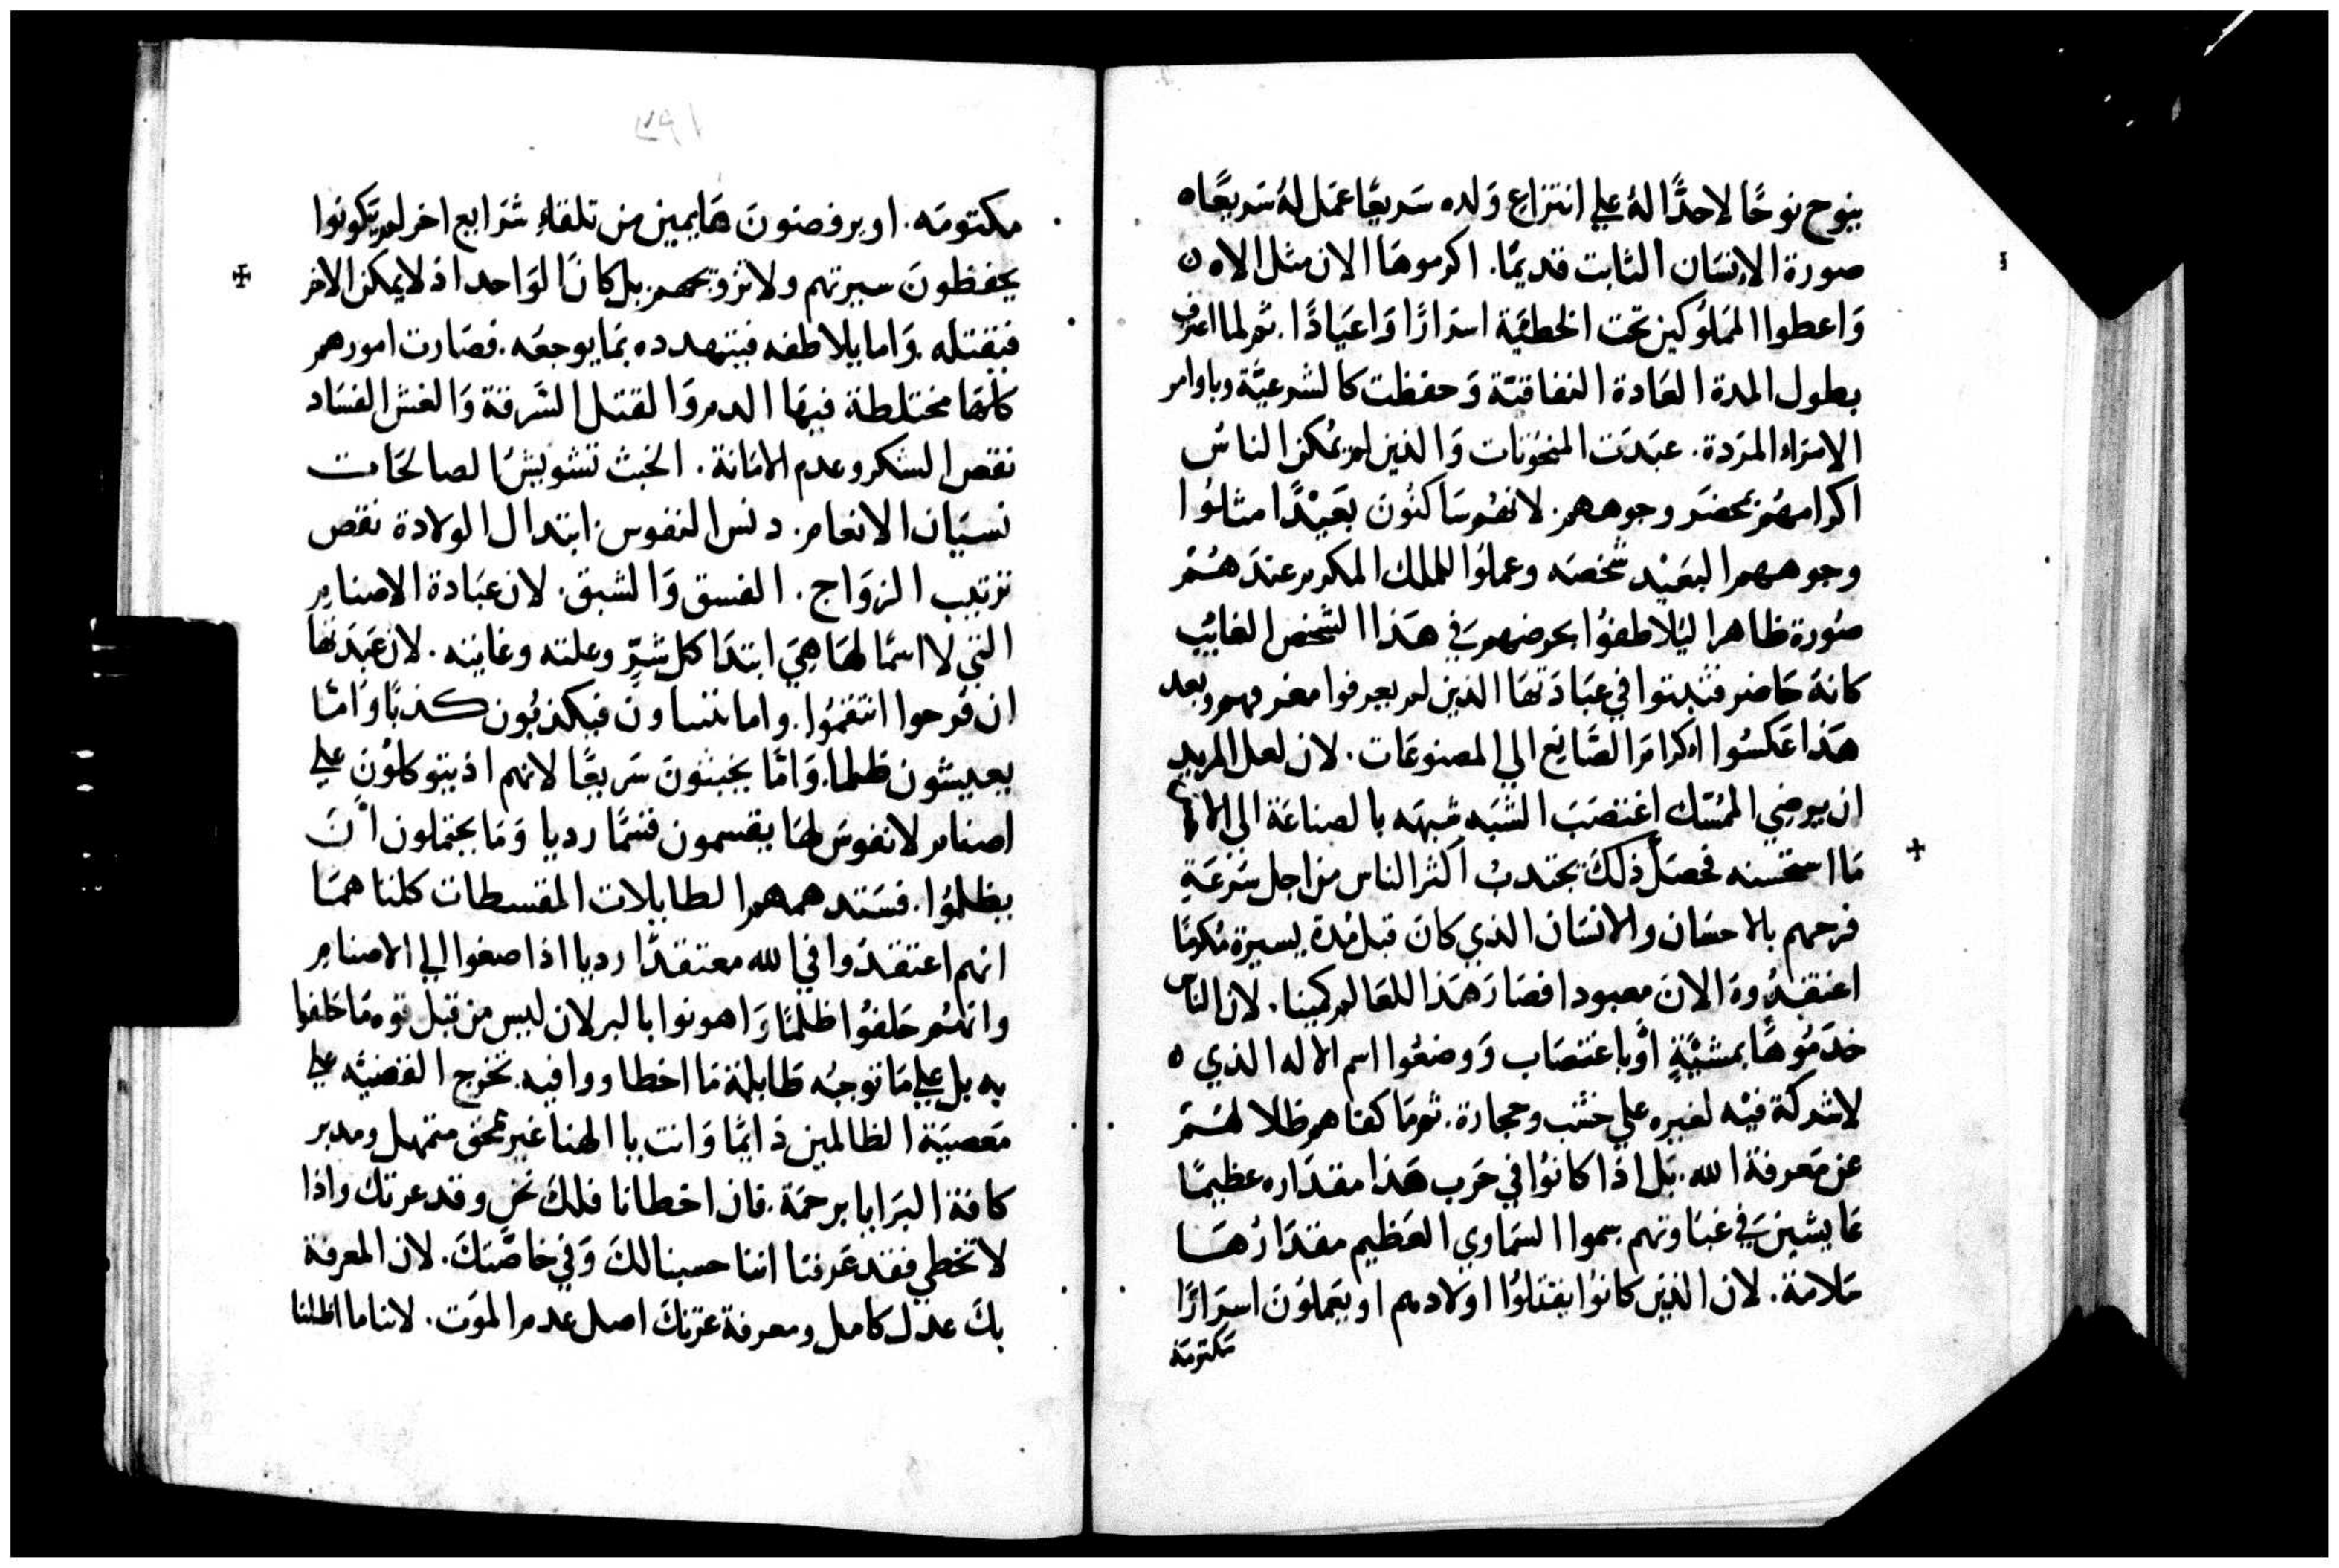 ينوح نوحًا لاحدًا لهُ علي انتزاع وَلده سَريعًا عمَل لهُ سَريعًا ه
صورة الإنسَان الثابت قديمًا. اكرموهَا الان مثل الاه ن
وَاعطوا المَملوُكين تحت الخطيَّة اسرَارًا وَاعيَادًا. ثم لما اعترف
بطول المدة العَادة النفاقيَّة وَحفظت كالشرعيَّة وباوامر
الامرَاء المرَدة. عبَدَت المنحوُتات وَالذين لم يمُكن الناسُ
اكرامهُم بمحضَر وجوههم. لانهُم سَاكنوُن بَعَيْدًا مثلوُا
وجوههم البعَيْد شخصَه وعملوُا للملك المكرم عندَ هُمْ
صُورة ظاهرا ليُلاطفوُا بحرضهم فَي هَذا الشخص الغايُب
كانهَ حَاضر فثبتوا في عبَادَتهَا الذين لم يعرفوا مغرمهم وبعد
هَذا عَكسُوا اكرامَ الصَّانِع الي المصنوعَات. لان لعل المريد
ان يرضي المُمسّك اغتصَبَ الشبَه شبهَه بالصناعَة الى الا
مَا استحسنه فحصَل ذلكَ يجتدبُ اكثر الناس من اجل سُرْعَةِ
فرحهم بالاحسَان والانسَان الذي كانَ قبل مُدة يسيرة مُكرمًا
اعتقدُوهَ الانَ معبودا فصَارَ هَذا للعَالم كمينا. لان الناس
خدَموُهَا بمشيَّةٍ اوْ باغتصَاب وَوضعُوا اسم الاله الذي ه
لا شركَة فيْه لغيره علي خشب وحجارة. ثم مَا كفاهم ظلا لهُمْ
عن مَعرفة الله. بَل اذا كانوُا في حَرب هَذا مقدَاره عظيمًا
عَايشينَ في غبَاوتهم سموا السَمَاوي العَظيم مقدَارُهَا
مَلامَة. لان الذين كانوُا يقتلوُا اولادهم او يَعملوُن اسرَارًا
مَكتومَة
٣٩١
مكتومَه. او يرفضونَ هَايمين من تلقاءِ شرَايع اخر لم يَكونوا
يحفظونَ سيرتهم ولا تزويجهم بل كانَ الوَاحد اذ لا يمكن الاخر
فيقتله. وَاما يلاطفه فيتهدده بمَا يوجعَه. فصَارت امورهم
كلهَا مختلطة فيهَا الدم وَالقتل السَّرقة وَالغش الفسَاد
نقص الشكر وعدم الامَانة. الخبث تشويشُا لصالحَات
نسيَان الانعام. دنس النفوس. ابتدال الولادة نقص
ترتيب الزوَاج. الفسق وَالشبق. لان عبَادة الاصنام
التي لا اسمًا لهَا هيَ ابتدَا كل شرٍّ وعلته وغايته. لان عَبَدَتهَا
ان فَرحوا انتقمُوا. واما يتنباون فيكذبُون كذبًا وَامَّا
يعيشون ظلما. وَامَّا يخبثونَ سَريعًا لانهم اذ يتوكلوُنَ علي
اصنام لا نفوسَ لهَا يقسمون قسمًا رديا وَمَا يحتملون انَ
يظلموُا. فسَتدهمهم الطايلات المقسطات كلتا همَا
انهم اعتقدُوا في الله معتقدًا رديا اذا صغوا الي الاصنام
وانهُم حَلفوُا ظلمًا وَاهونوا بالبر لان ليس من قبل قوه مَا حَلفوا
به بل علي مَا توجبُه طَايلة مَا اخطاووا فيه. تخرج القضيَّه علي
مَعصيَة الظالمين دَايمًا وَانت يا الهنا غير محنق متمهل ومدبر
كافة البرَايا برحمَة. فان اخطانا فلكَ نحن وقد عرفنَك واذا
لا نخطي فقد عَرفنا اننا حسبنا لكَ وَفي خاصَّتكَ. لان المعرفة
بكَ عدل كامل ومعرفة عزتكَ اصل عدم الموَت. لاننا ما اظلنا